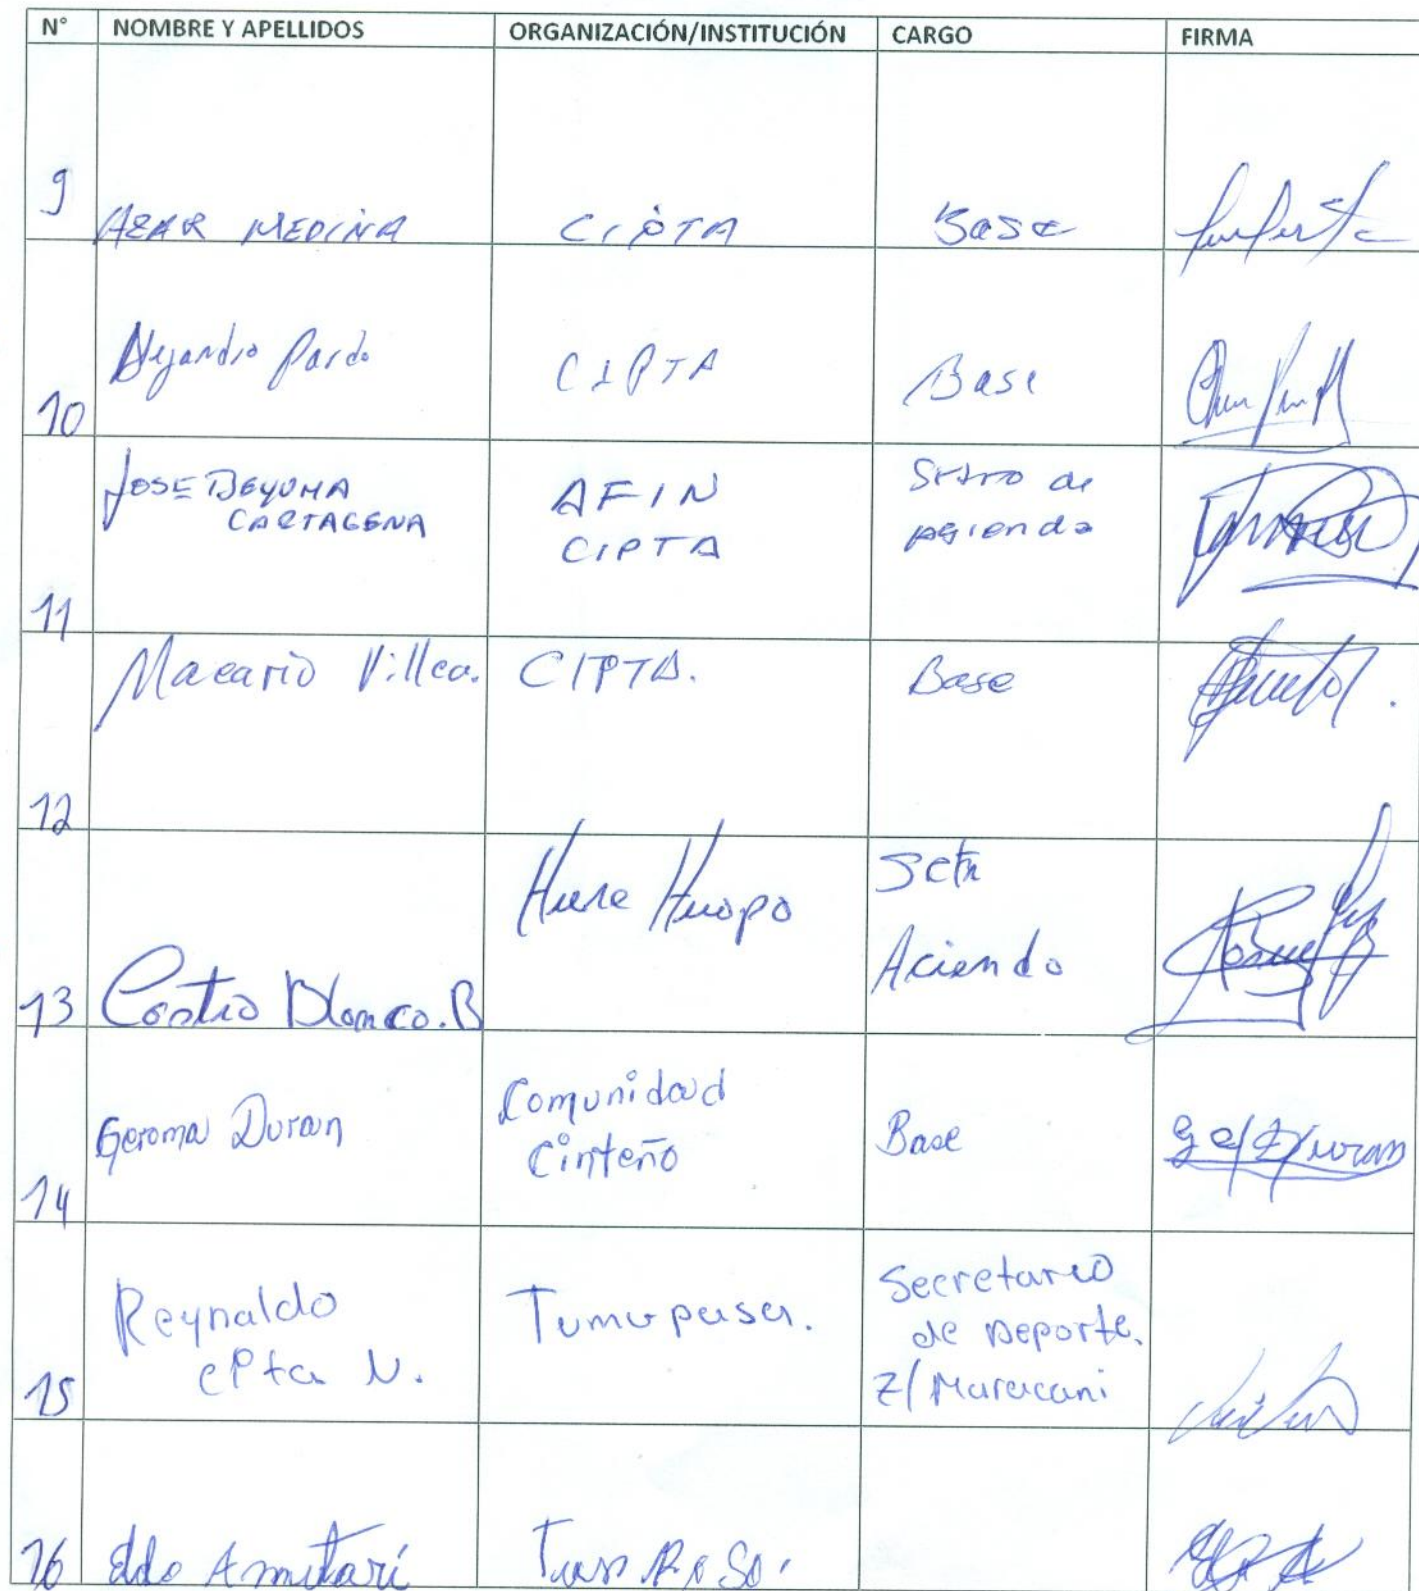 N° NOMBRE Y APELLIDOS ORGANIZACIÓN/INSTITUCIÓN CARGO FIRMA
9 AZAR MEDINA CIPTA Base
10 Alejandro Pardo CIPTA Base
11 JOSE BEYUMA CARTAGENA AFIN CIPTA de
12 Macario Villca. CIPTA. Base
13 Castro Blanco.B Huapo Aciendo
14 Geroma Duran Comunidad Cinteño Base
15 Reynaldo N. Tumupasa. Secretario de Deporte. Z/Maracani
16 Eldo Amutari